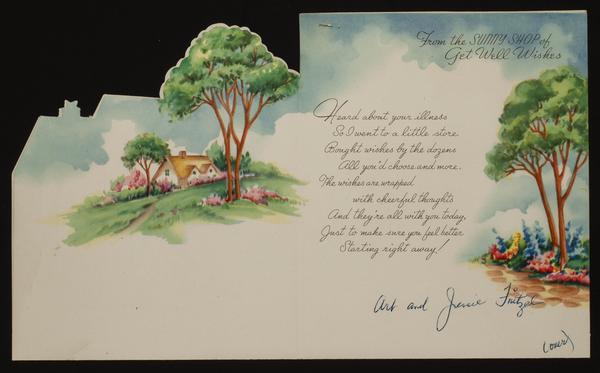 From the SUNNY SHOP of
Get Well Wishes
Heard about your illness
So I went to a little store
Bought wishes by the dozens
All you'd choose and more.
The wishes are wrapped
with cheerful thoughts
And they're all with you today,
Just to make sure you feel better
Starting right away!
Art and Jessie
(over)